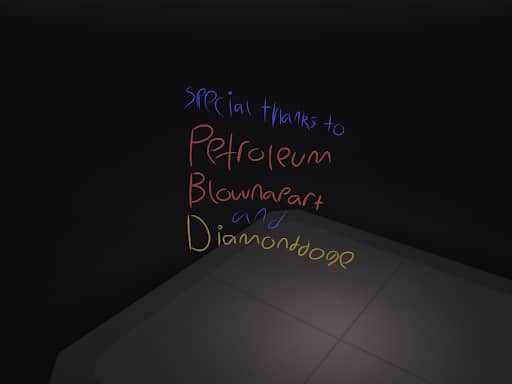 special thanks to
Petroleum
Blownapart
and
Diamonddoge